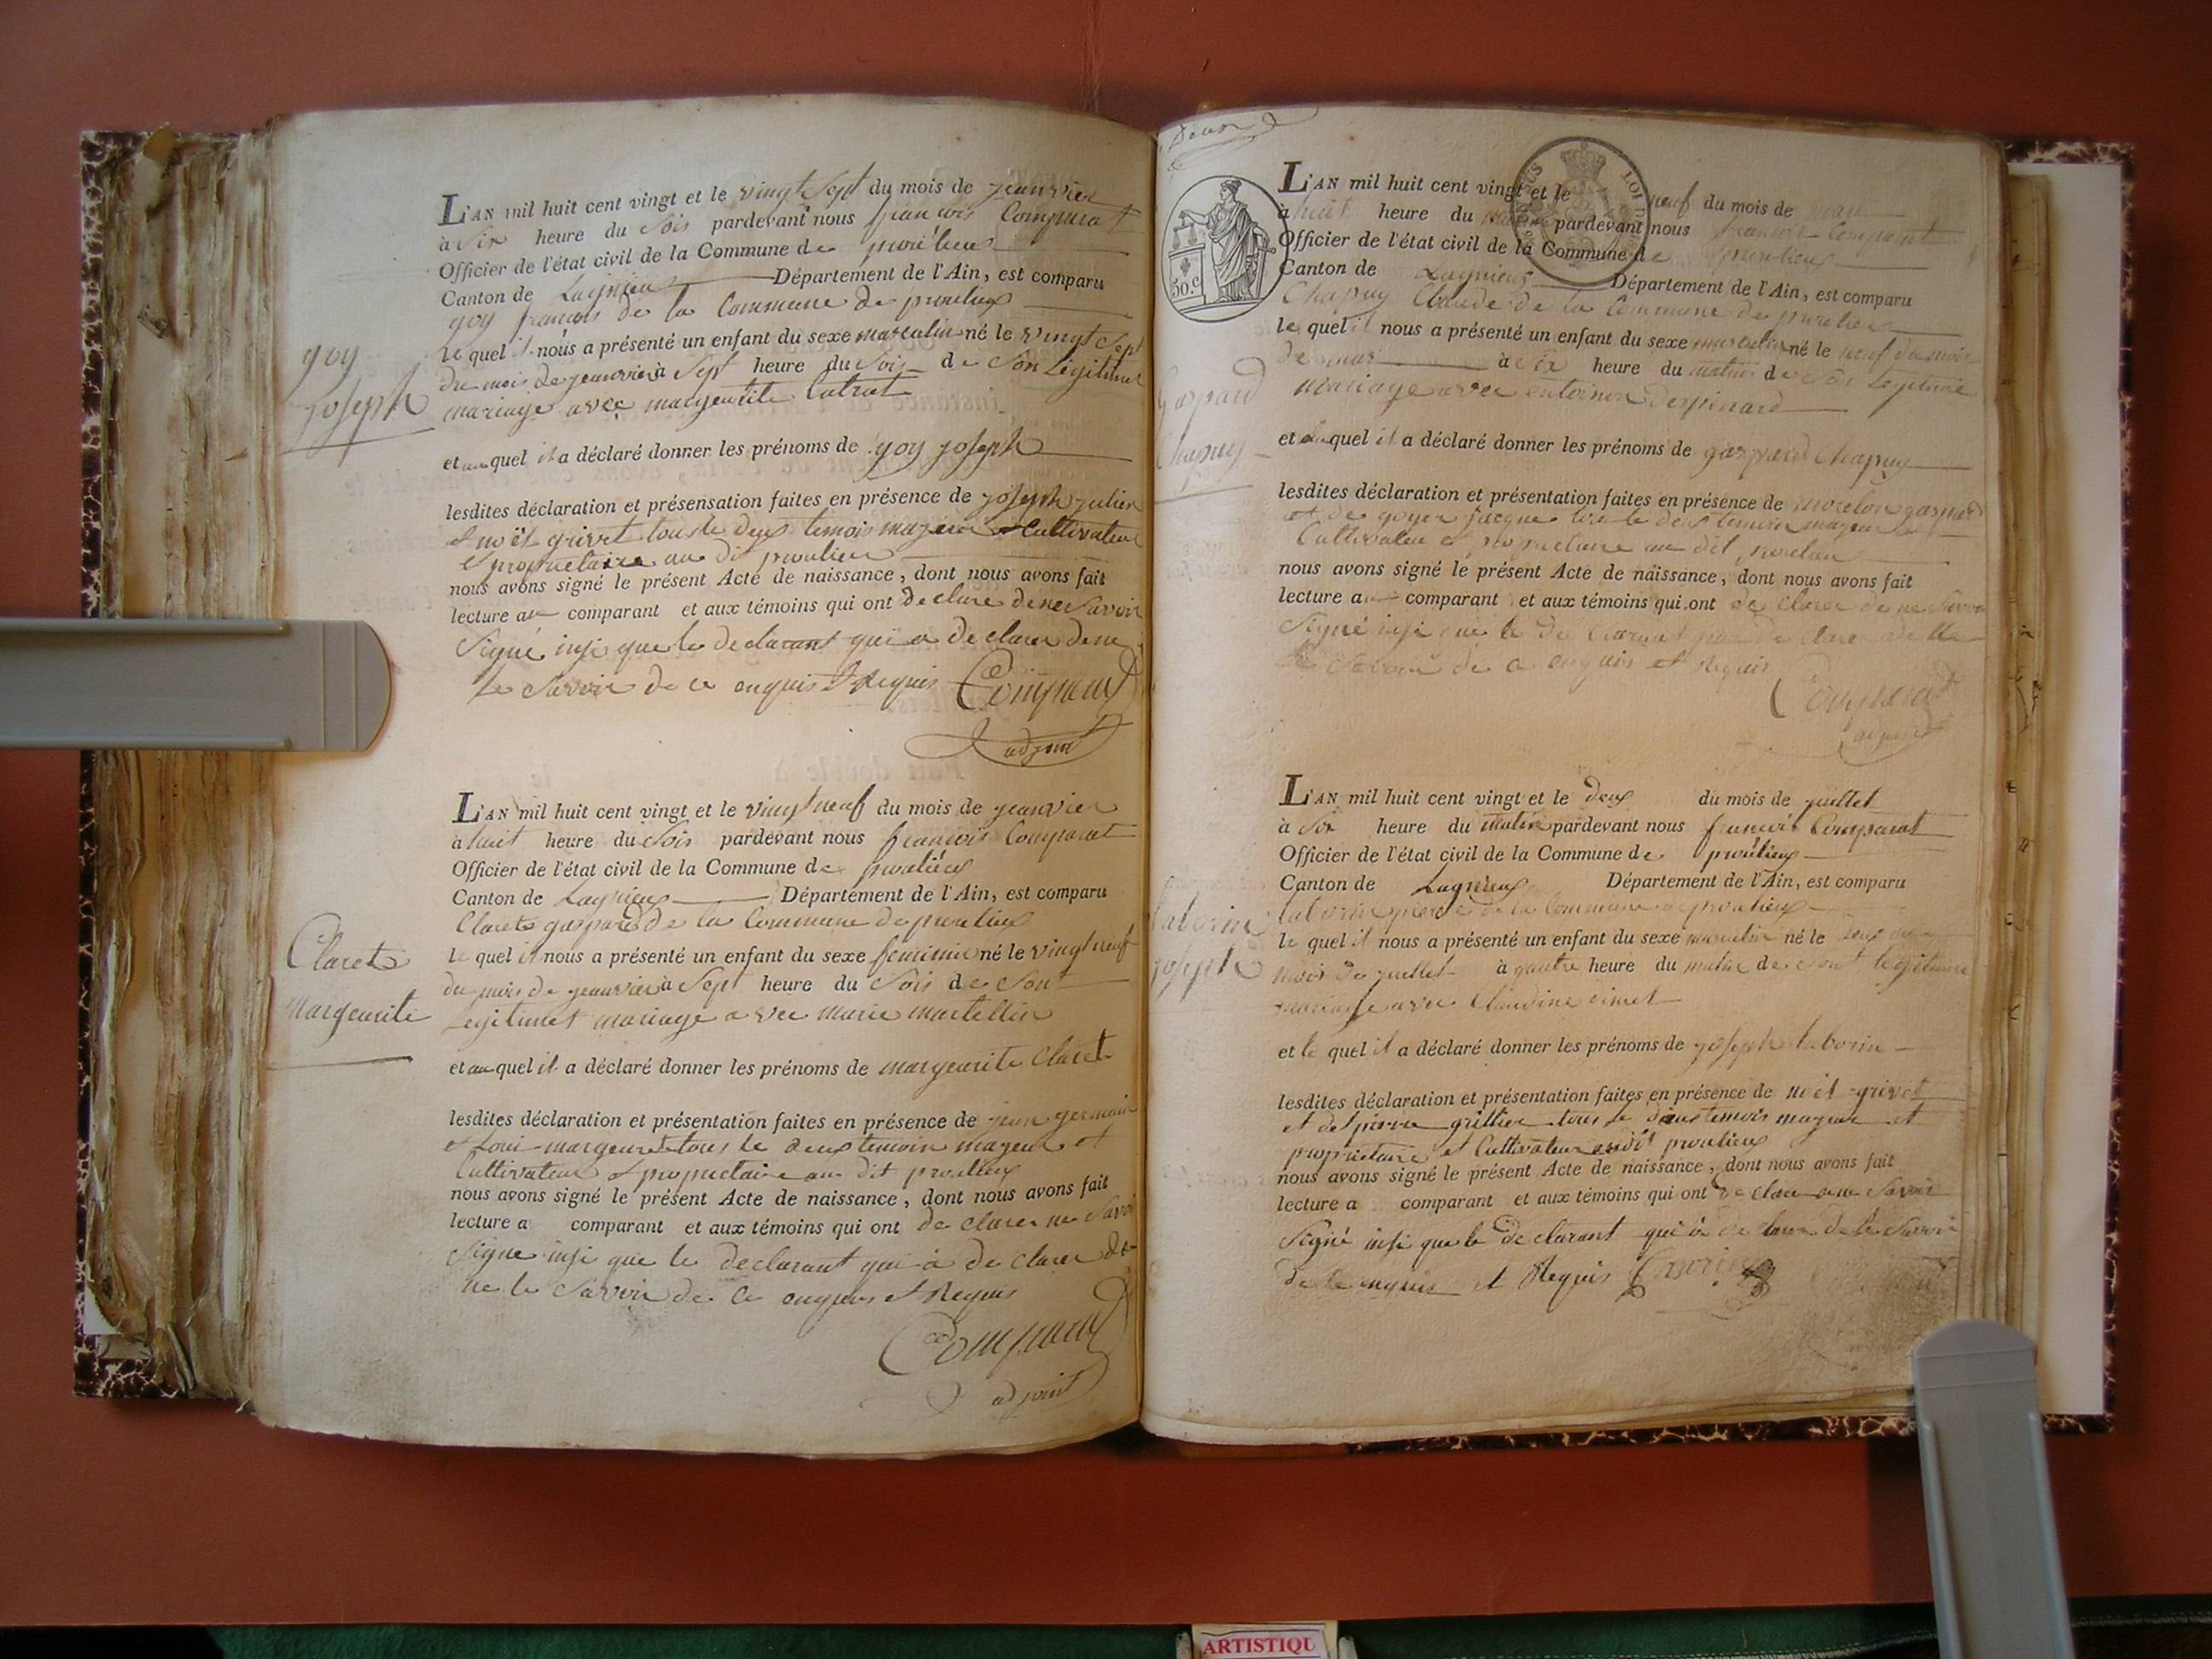 goy
joseph
L'AN mil huit cent vingt et le vingt Sept du mois de jeanvier
à Six heure du Soir pardevant nous francois Comparat
Officier de l'état civil de la Commune de proulieu
Canton de Lagnieu Département de l'Ain, est comparu
goy francois de la Commune de proulieux
le quel il nous a présenté un enfant du sexe masculin né le vingt Sept
du mois de jeanvier à Sept heure du Soir de Son Légitimet
mariage avec margeurite
et au quel il a déclaré donner les prénoms de goy joseph
lesdites déclaration et présensation faites en présence de joseph julien
et noët grivet tous le deux temois mageur et Cultivateur
et propriettaire au dit proulieu
nous avons signé le présent Acte de naissance, dont nous avons fait
lecture au comparant et aux témoins qui ont declare de ne Savoir
Signé insi que le declarant qui a declarer de ne
le Savoir de ce enquis et Requis Comparat
adjoint
Claret
margeurite
L'AN mil huit cent vingt et le vingt neuf du mois de jeanvier
à huit heure du Soir pardevant nous francois Comparat
Officier de l'état civil de la Commune de proulieux
Canton de Lagnieux Département de l'Ain, est comparu
Claret gaspard de la Commune de proulieux
le quel il nous a présenté un enfant du sexe feminin né le vingt neuf
du mois de jeanvier à Sept heure du Soir de Sont
Legitimet mariage avec marie martellin
et au quel il a déclaré donner les prénoms de margeurite Claret
lesdites déclaration et présentation faites en présence de jean germain
et Loui margeuret tous le deux temoin mageur et
Cultivateur et propriettaire au dit proulieux
nous avons signé le présent Acte de naissance, dont nous avons fait
lecture a comparant et aux témoins qui ont de clarer ne Savoir
Signe insi que le declarant qui à de clarer de
ne le Savoir de ce enquis et Requis
Comparat
adjoint
Deux
50.c
Gaspard
Chapuy
L'AN mil huit cent vingt et le neuf du mois de mars
à huit heure du matin pardevant nous francois Comparat
Officier de l'état civil de la Commune de proulieux
Canton de Lagnieux Département de l'Ain, est comparu
Chapuy Claude de la Commune de proulieux
le quel il nous a présenté un enfant du sexe masculin né le neuf du mois
de mars à Six heure du matin de Son Legitime
mariage avec
et au quel il a déclaré donner les prénoms de gaspard Chapuy
lesdites déclaration et présentation faites en présence de morelon gaspard
et de goyer jacque tous le deux temoin mageur
Cultivateur et propriettaire au dit proulieu
nous avons signé le présent Acte de naissance, dont nous avons fait
lecture a comparant et aux témoins qui ont de clarer de ne Savoir
Signé insi que le de clarant
Savoir de ce enquis et Requis
Comparat
adjoint
Laborin
joseph
L'AN mil huit cent vingt et le deux du mois de juillet
à Six heure du matin pardevant nous francoit Comparat
Officier de l'état civil de la Commune de proulieux
Canton de Lagnieux Département de l'Ain, est comparu
Laborin pierre de la Commune de proulieux
le quel il nous a présenté un enfant du sexe masculin né le deux du
mois de juillet à quatre heure du matin de Sont legitimet
mariage avec Claudine
et le quel il a déclaré donner les prénoms de joseph laborin
lesdites déclaration et présentation faites en présence de noët grivet
et de pierre grillier tous le deux temoir mageur et
proprietaire et Cultivateur audit proulieux
nous avons signé le présent Acte de naissance, dont nous avons fait
lecture a comparant et aux témoins qui ont de clarer ne Savoir
Signé insi que le de clarant qui à de clarer de le Savoir
de ce enquis et Requis
ARTISTIQU